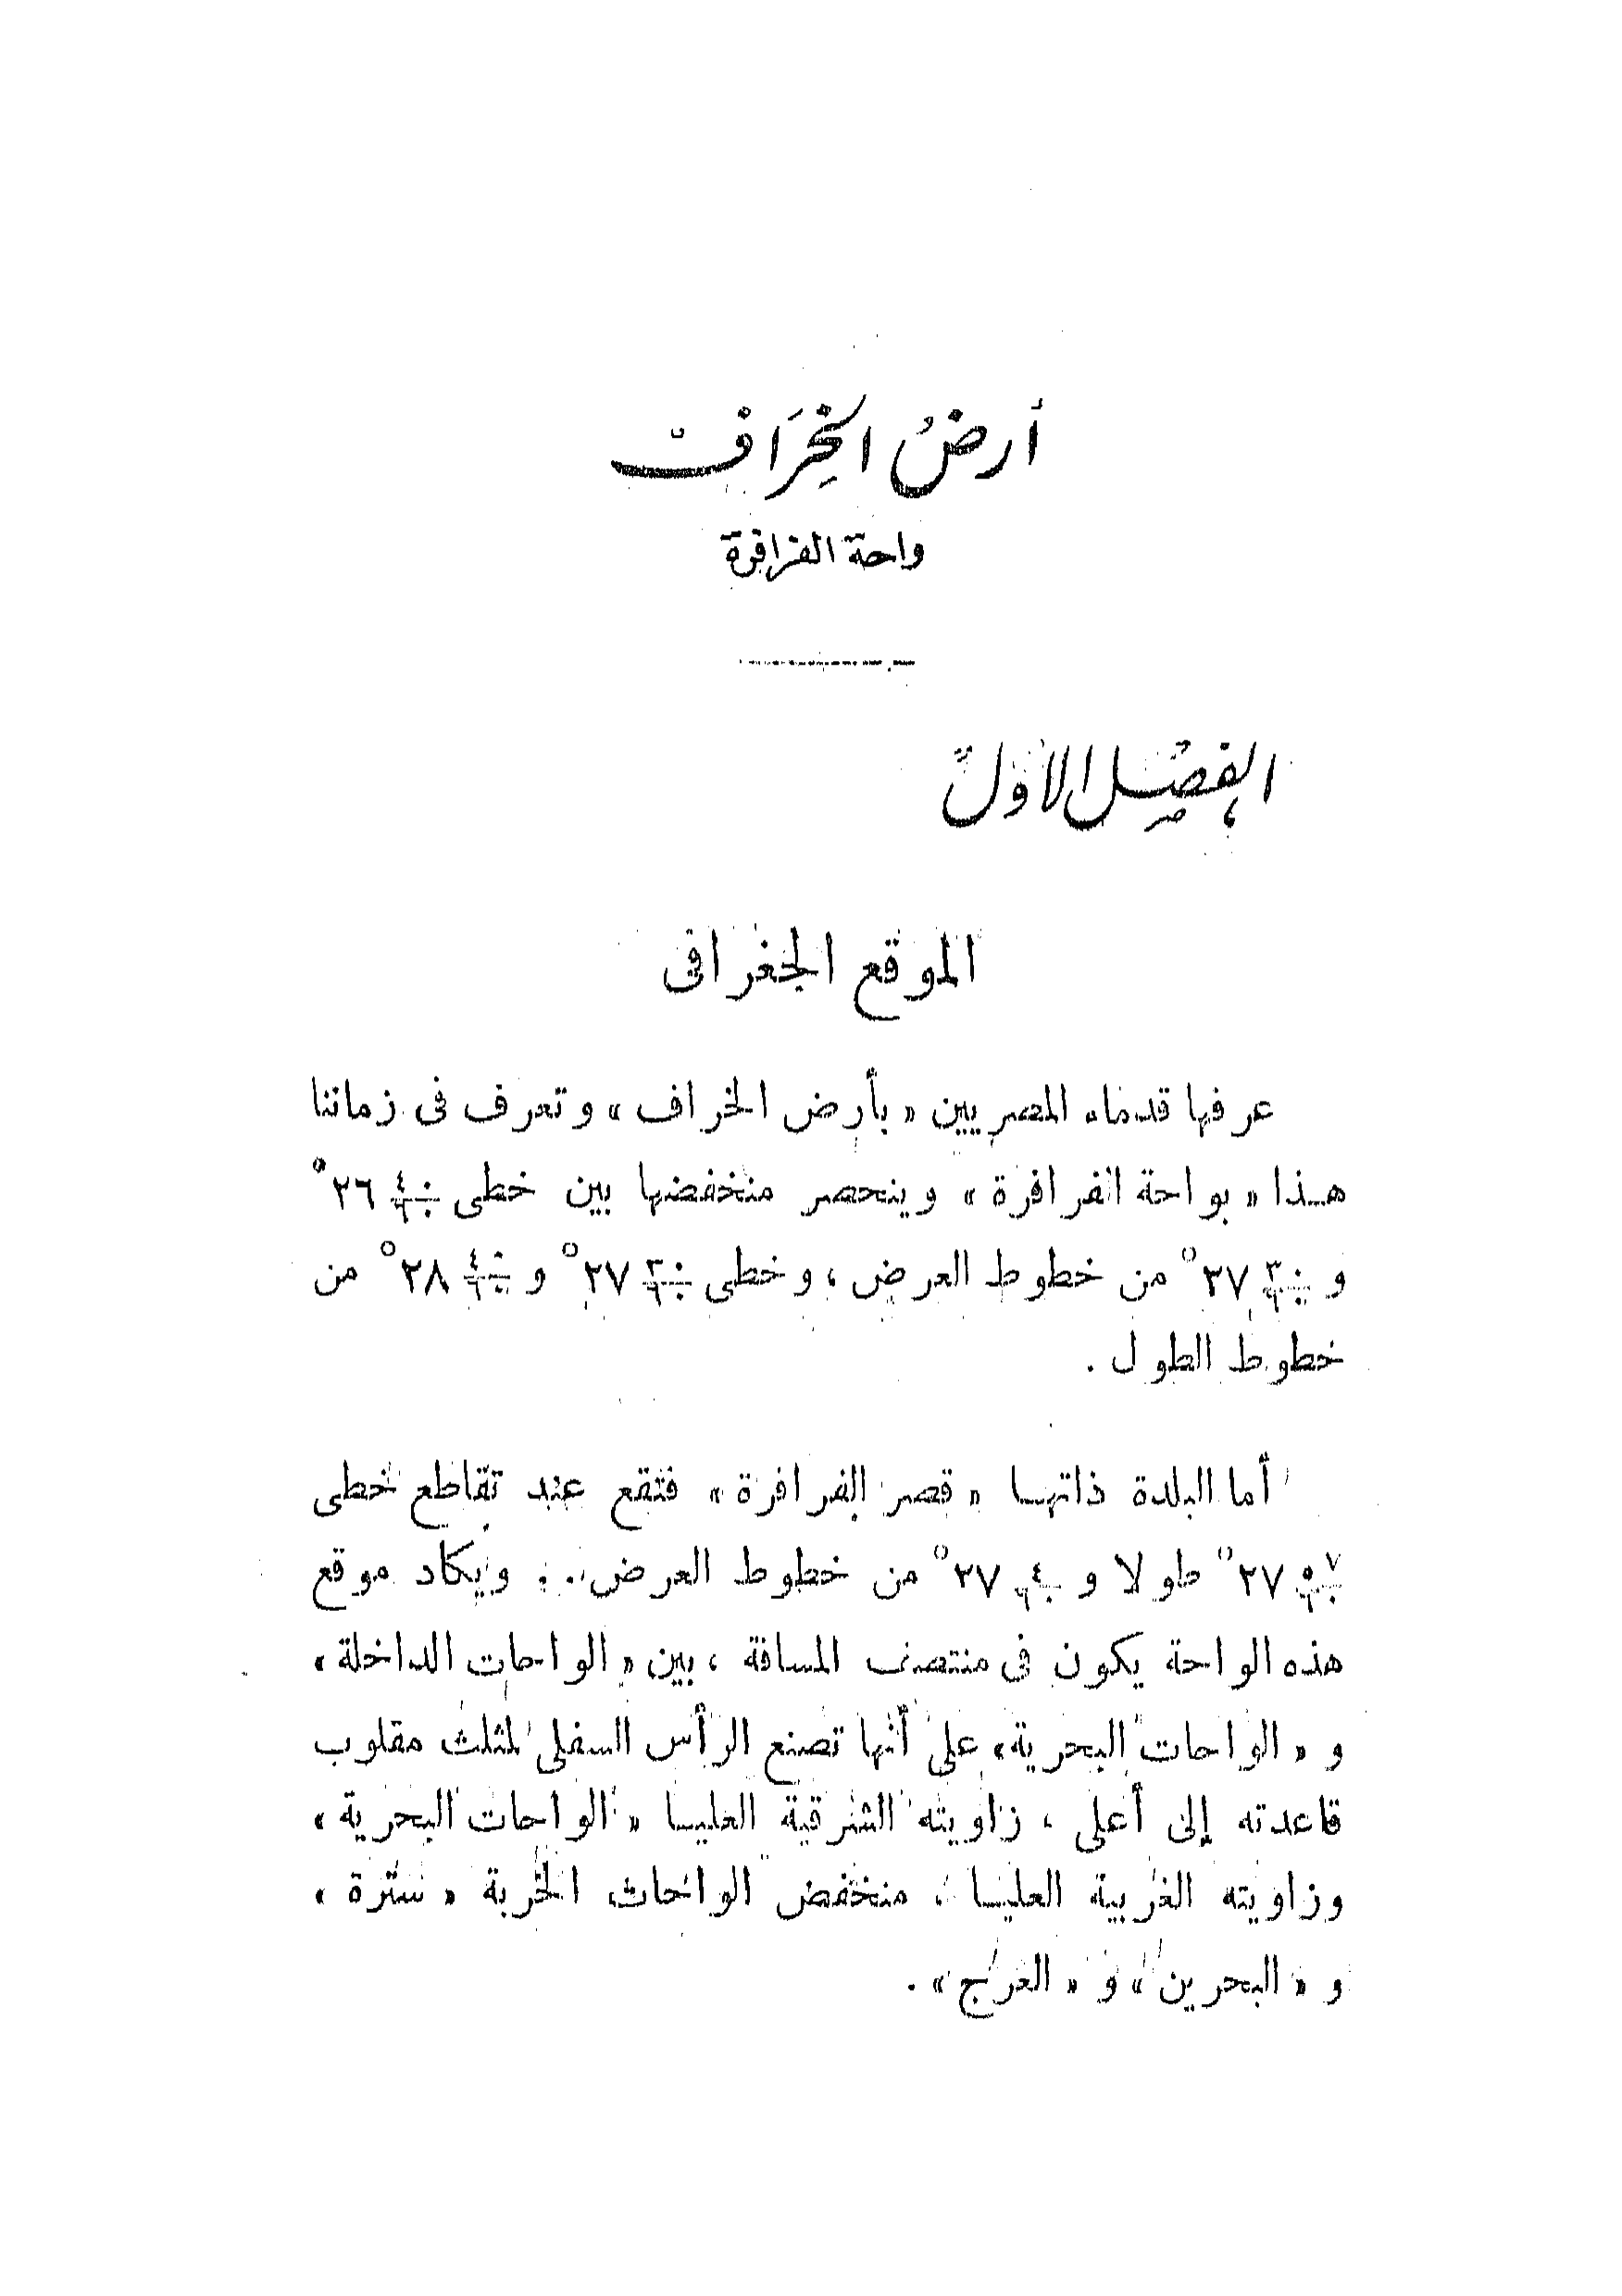 أرضُ الخِرَاف
واحة الفرافرة
الفصل الأول
الموقع الجغرافى
عرفها قدماء المصريين « بأرض الخراف » وتعرف فى زماننا
هـذا « بواحة الفرافرة » وينحصر منخفضها بين خطى ٤٠/٦٠ ٢٦°
و ٣٠/٦٠ ٢٧° من خطوط العرض ، وخطى ٣٠/٦٠ ٢٧° و ٤٠/٦٠ ٢٨° من
خطوط الطول .
أما البلدة ذاتهـا « قصر الفرافرة » فتقع عند تقاطع خطى
٢٧° طولا و ٤/٦٠ ٢٧° من خطوط العرض .. ويكاد موقع
هذه الواحة يكون فى منتصف المسافة ، بين « الواحات الداخلة »
و « الواحات البحرية » على أنها تصنع الرأس السفلى لمثلث مقلوب
قاعدته إلى أعلى ، زاويته الشرقية العليـا « الواحات البحرية »
وزاويته الغربية العليـا ، منخفض الواحات الخربة « سترة »
و « البحرين » و « العرج » .